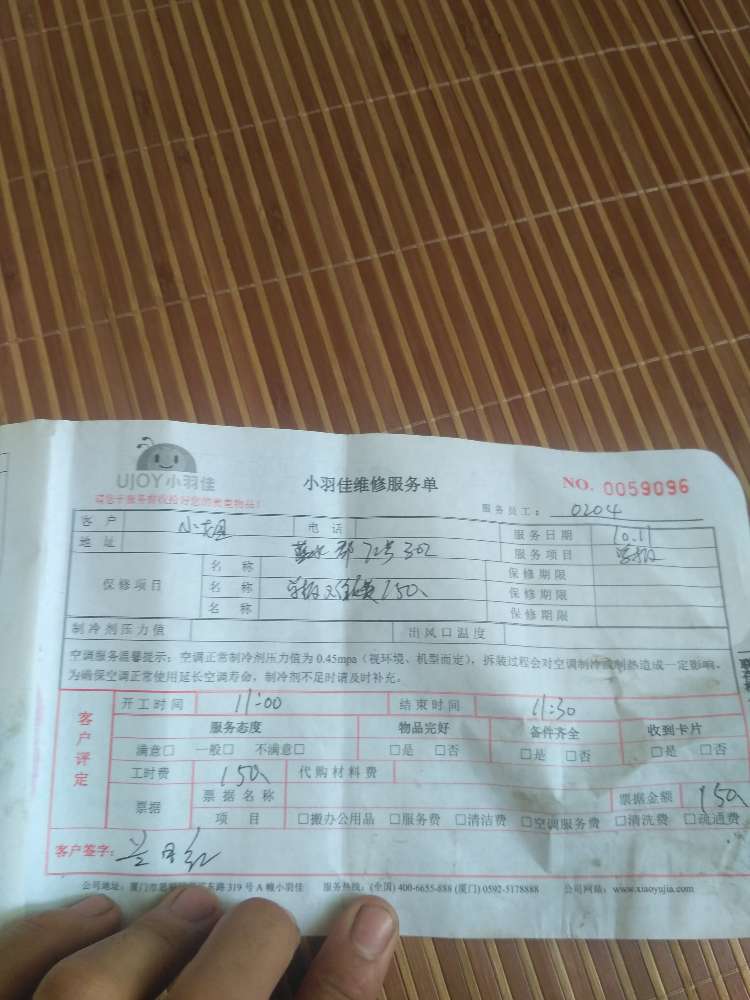 UJOY小羽佳
小羽佳维修服务单
NO. 0059096
请您于服务前收捡好您的贵重物品!
服务员工: 0204
客户 电话 服务日期 10.11
地址 服务项目
保修项目 名称 保修期限
名称 150 保修期限
名称 保修期限
制冷剂压力值 出风口温度
空调服务温馨提示: 空调正常制冷剂压力值为 0.45mpa (视环境、机型而定), 拆装过程会对空调制冷或制热造成一定影响,
为确保空调正常使用延长空调寿命, 制冷剂不足时请及时补充。
客户评定
开工时间 11:00 结束时间 11:30
服务态度 物品完好 备件齐全 收到卡片
满意□ 一般□ 不满意□ □是 □否 □是 □否 □是 □否
工时费 150 代购材料费
票据 票据名称 票据金额 150
项目 □搬办公用品 □服务费 □清洁费 □空调服务费 □清洗费 □疏通费
客户签字:
公司地址: 厦门市思明区 东路 319 号 A 幢小羽佳 服务热线: (全国) 400-6655-888 (厦门) 0592-5178888 公司网站: www.xiaoyujia.com